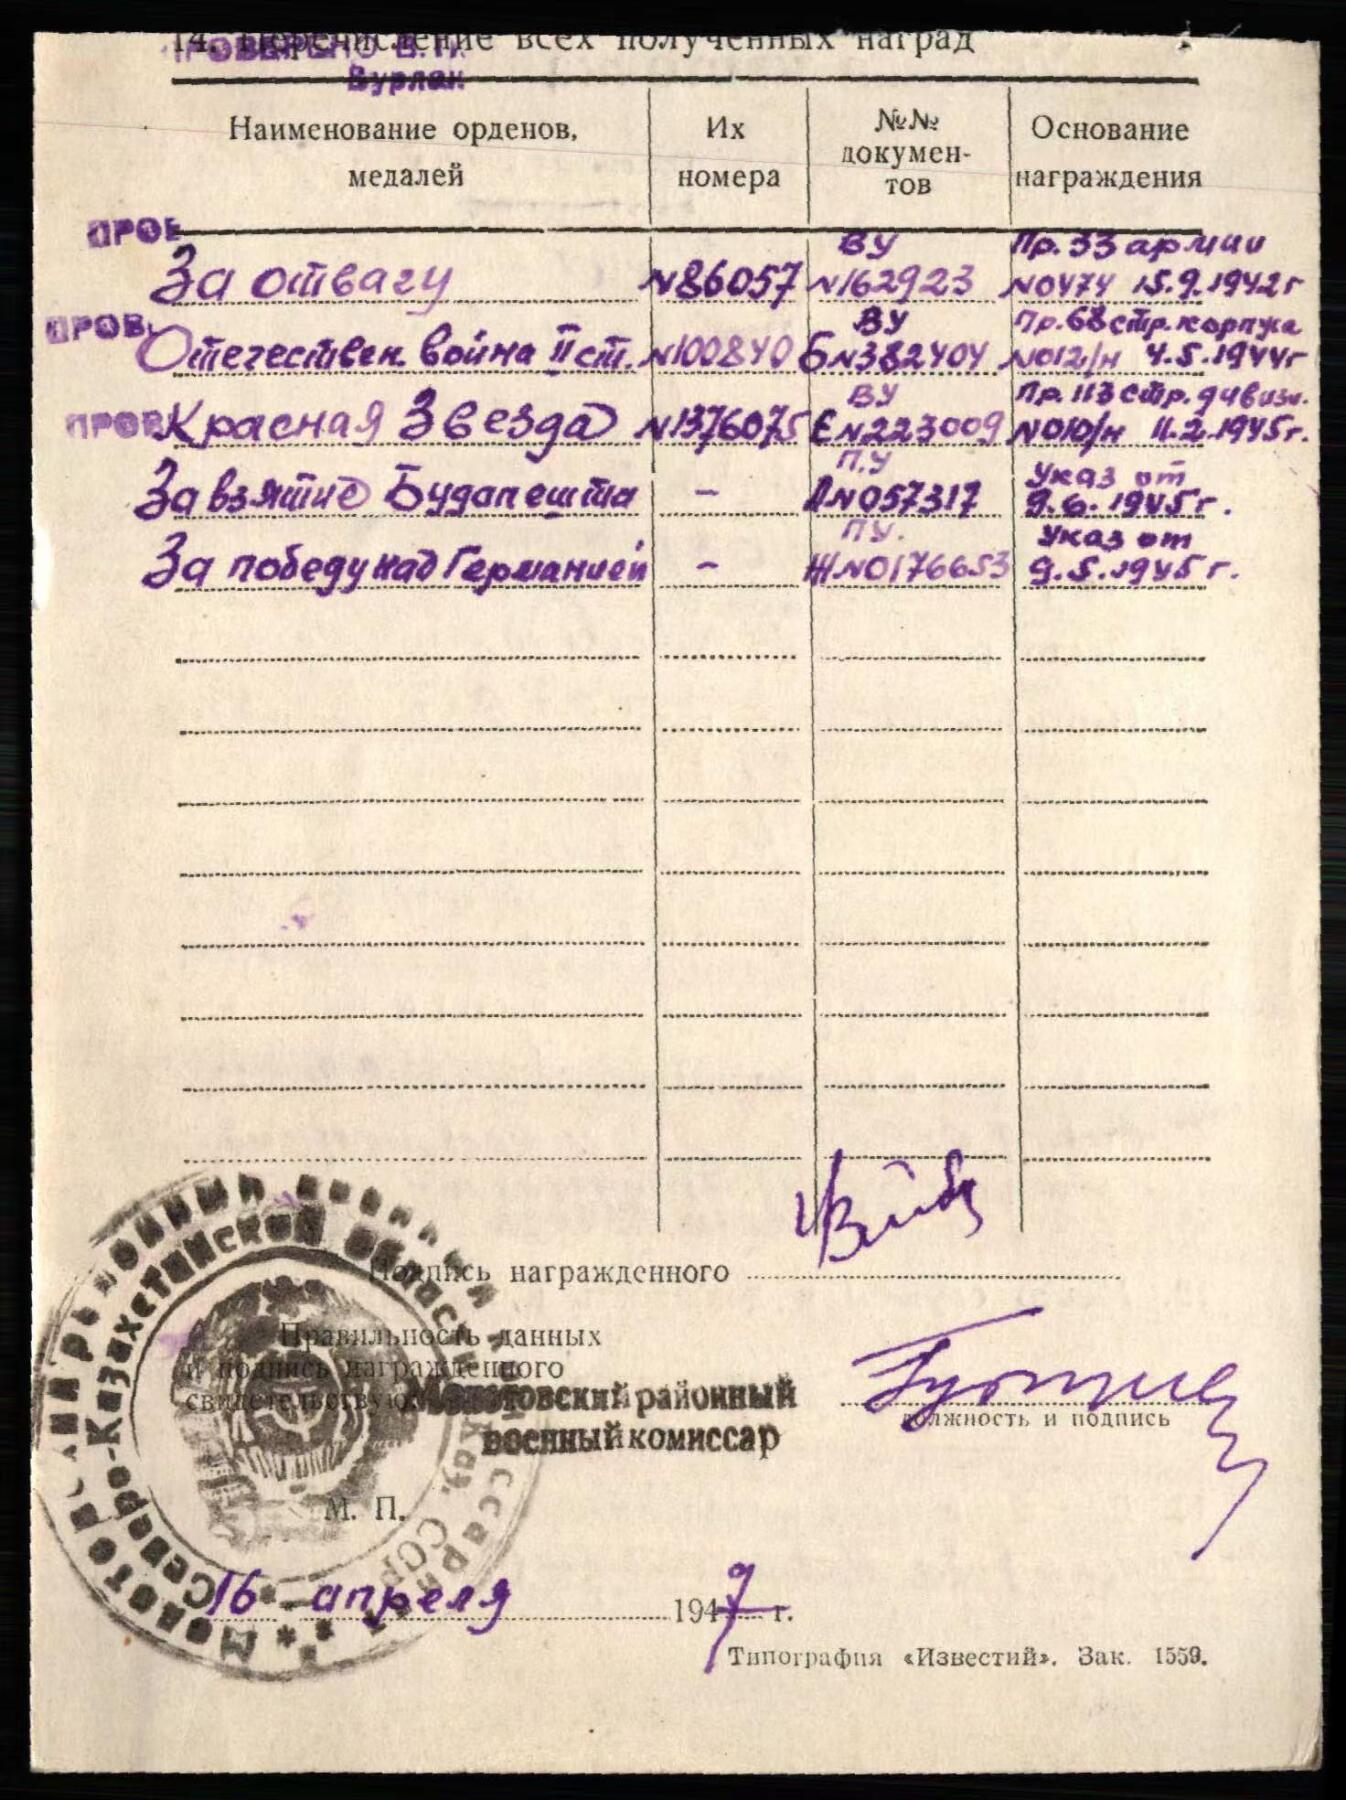 14. Перечисление всех полученных наград
ПРОВЕРЕНО
Бурлак
Наименование орденов, медалей
Их номера
№№ докумен-тов
Основание награждения
ПРОВ
За отвагу
N86057
ВУ
N162923
Пр. 33 армии
N0474 15.9.1942г
ПРОВ.
Отечествен. война II ст.
N100840
ВУ
Б N382404
Пр. 68 стр. корпуса
N012/н 4.5.1944г
ПРОВ
Красная Звезда
N1376075
ВУ
Е N223009
Пр. 113 стр. дивизи.
N010/н 11.2.1945г.
За взятие Будапешта
–
П.У
Л N057317
Указ от
9.6.1945г.
За победу над Германией
–
ПУ.
Ж N0176653
Указ от
9.5.1945г.
Подпись награжденного
Правильность данных
и подпись награжденного
свидетельствую
Молотовский районный
военный комиссар
должность и подпись
М. П.
Молотовский районный военный комиссариат
Северо-Казахстанской области Каз. ССР
16 апреля 1947 г.
Типография «Известий». Зак. 1559.